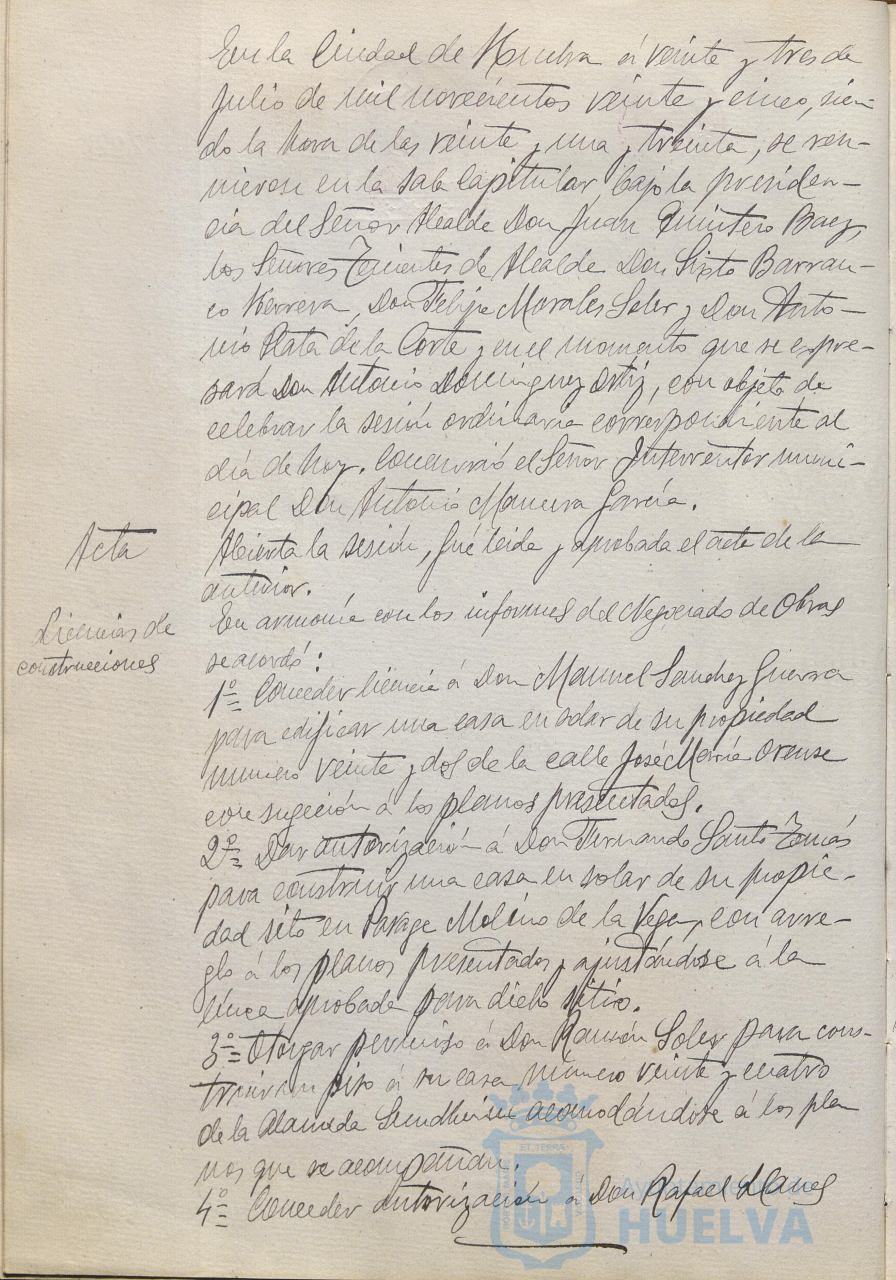 En la Ciudad de Huelva á veinte y tres de
Julio de mil novecientos veinte y cinco, sien-
do la hora de las veinte y una y treinta, se reu-
nieron en la sala Capitular, bajo la presiden-
cia del Señor Alcalde Don Juan Quintero Baez,
los Señores Tenientes de Alcalde Don Sixto Barran-
co Herrera, Don Felipe Morales Soler y Don Anto-
nio Plata de la Corte y en el momento que se expre-
sará Don Antonio Dominguez Ortiz, con objeto de
celebrar la sesión ordinaria correspondiente al
día de hoy. Concurrió el Señor Interventor muni-
cipal Don Antonio García.
Acta
Abierta la sesión, fué leida y aprobada el acta de la
anterior.
Licencias de
construcciones
En armonía con los informes del Negociado de Obras
se acordó:
1º= Conceder licencia á Don Manuel Sanchez Guerra
para edificar una casa en solar de su propiedad
número veinte y dos de la calle José María Orense
con sugeción á los planos presentados.
2º= Dar autorización á Don Fernando Santo Tomás
para construir una casa en solar de su propie-
dad sito en Parage Molino de la Vega, con arre-
glo á los planos presentados y ajustándose á la
línea aprobada para dicho sitio.
3º= Otorgar permiso á Don Ramón Soler para cons-
truir un piso á su casa número veinte y cuatro
de la Alameda Sundheim acomodándose á los pla
nos que se acompañan.
4º= Conceder autorización á Don Rafael Llanes
HUELVA